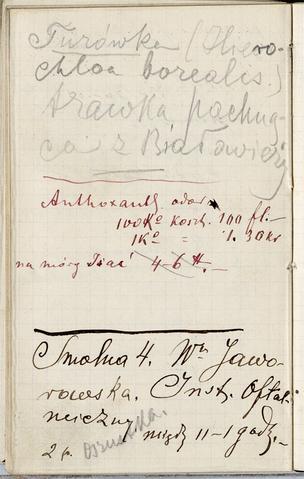 Turówka (Hiero-
chloa borealis.)
trawka pachną-
ca z Białowieży
Anthoxanth. odor.
100 Ko koszt. 100 fl.-
1 Ko = 1.30 kr
na mórg siać 4-6 ℔.-
Smolna 4. Wna Jawo-
rowska. Inst. Oftal-
miczny
międz 11-1 godz.-
2 p.